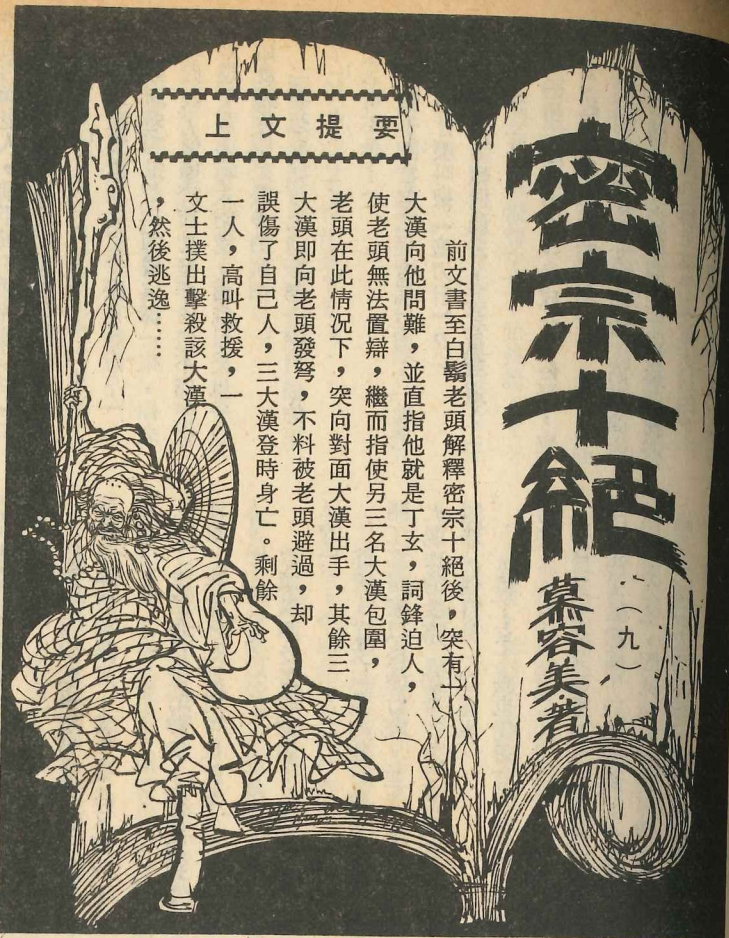 密宗十絕
（九）
慕容美·著
上文提要
前文書至白鬍老頭解釋密宗十絕後，突有一
大漢向他問難，並直指他就是丁玄，詞鋒迫人，
使老頭無法置辯，繼而指使另三名大漢包圍，
老頭在此情況下，突向對面大漢出手，其餘三
大漢即向老頭發弩，不料被老頭避過，却
誤傷了自己人，三大漢登時身亡。剩餘
一人，高叫救援，一
文士撲出擊殺該大漢
，然後逃逸……